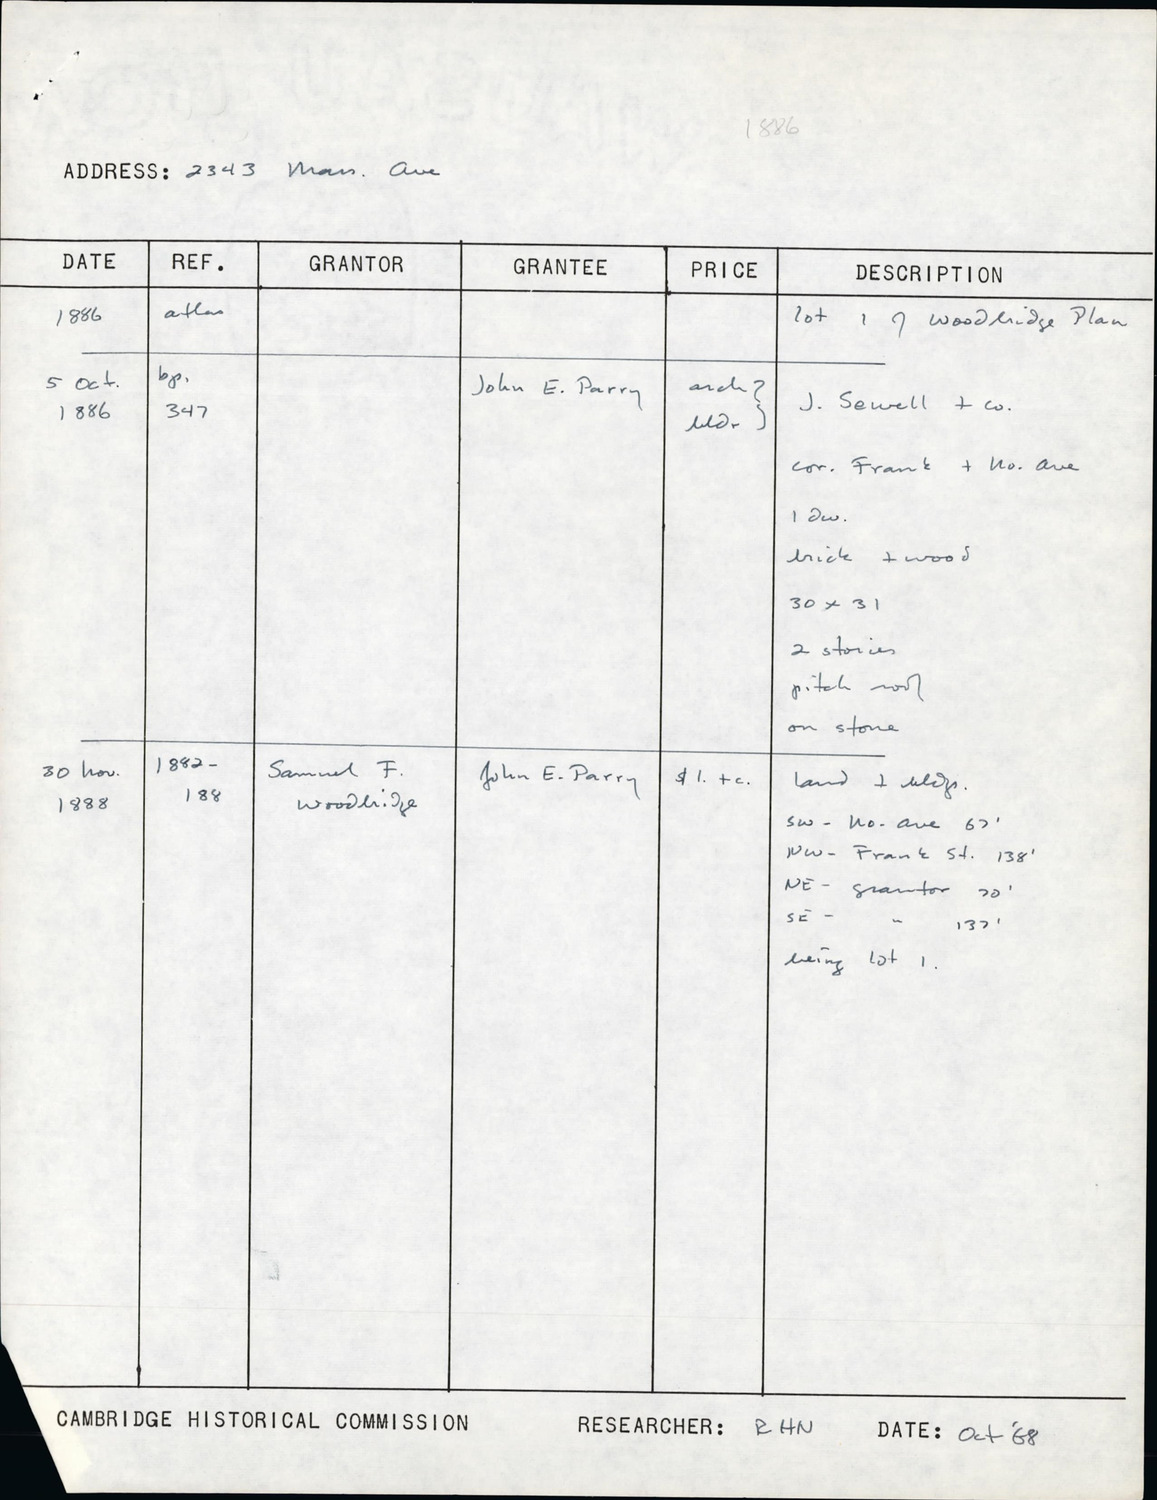 1886
ADDRESS: 2343 Mass. Ave
DATE REF. GRANTOR GRANTEE PRICE DESCRIPTION
1886 atlas lot 1 of Woodbridge Plan
5 Oct. 1886 bp. 347 John E. Parry arch } bldr }
J. Sewell + co.
cor. Frank + No. Ave
1 dw.
brick + wood
30 x 31
2 stories
pitch roof
on stone
30 Nov. 1888 1882-188 Samuel F. Woodbridge John E. Parry $1. + c.
land + bldgs.
SW - No. Ave 67'
NW - Frank St. 138'
NE - grantor 70'
SE - " 137'
being lot 1.
CAMBRIDGE HISTORICAL COMMISSION RESEARCHER: RHN DATE: Oct '68